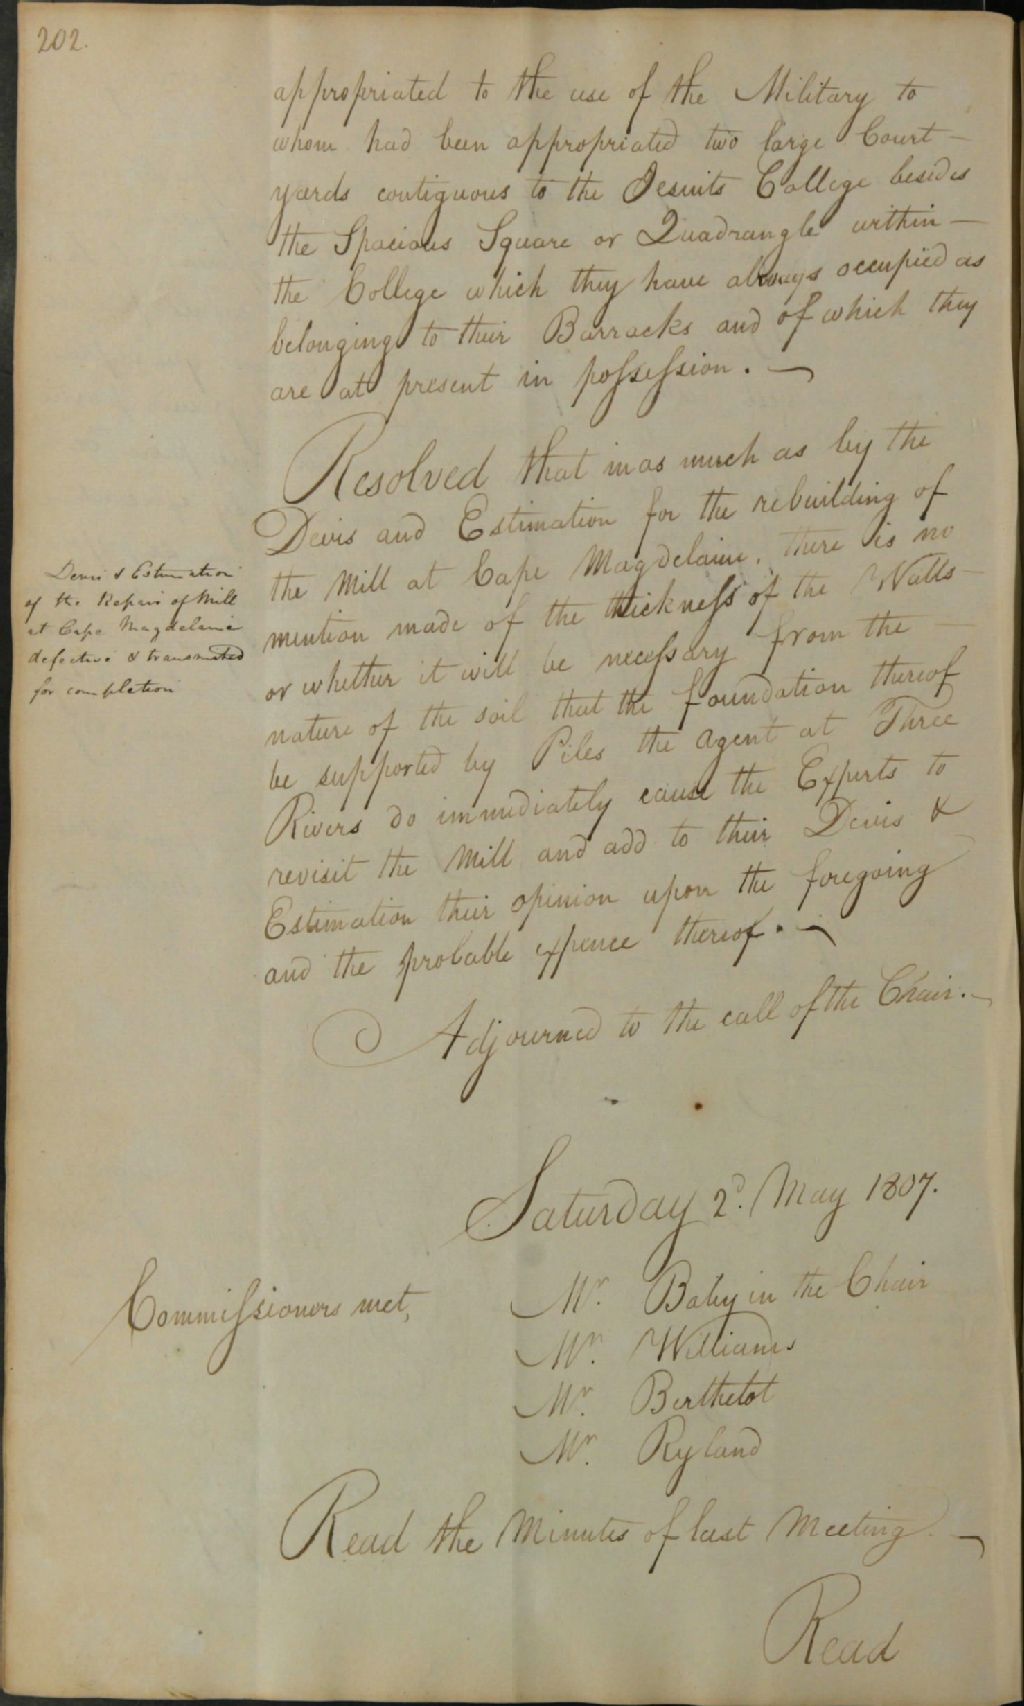 202.
appropriated to the use of the Military to
whom had been appropriated two large Court-
yards contiguous to the Jesuits College besides
the Spacious Square or Quadrangle within
the College which they have always occupied as
belonging to their Barracks and of which they
are at present in possession.
Resolved that in as much as by the
Devis and Estimation for the rebuilding of
the Mill at Cape Magdelaine, there is no
mention made of the thickness of the Walls
or whether it will be necessary from the
nature of the soil that the foundation thereof
be supported by Piles the agent at Three
Rivers do immediately cause the Experts to
revisit the Mill and add to their Devis &
Estimation their opinion upon the foregoing
and the probable expence thereof.
Devis & Estimation
of the Repairs of Mill
at Cape Magdelaine
defective & transmitted
for completion
Adjourned to the call of the Chair.
Saturday 2d. May 1807.
Commissioners met,
Mr. Baby in the Chair
Mr. Williams
Mr. Berthelot
Mr. Ryland
Read the Minutes of last Meeting
Read